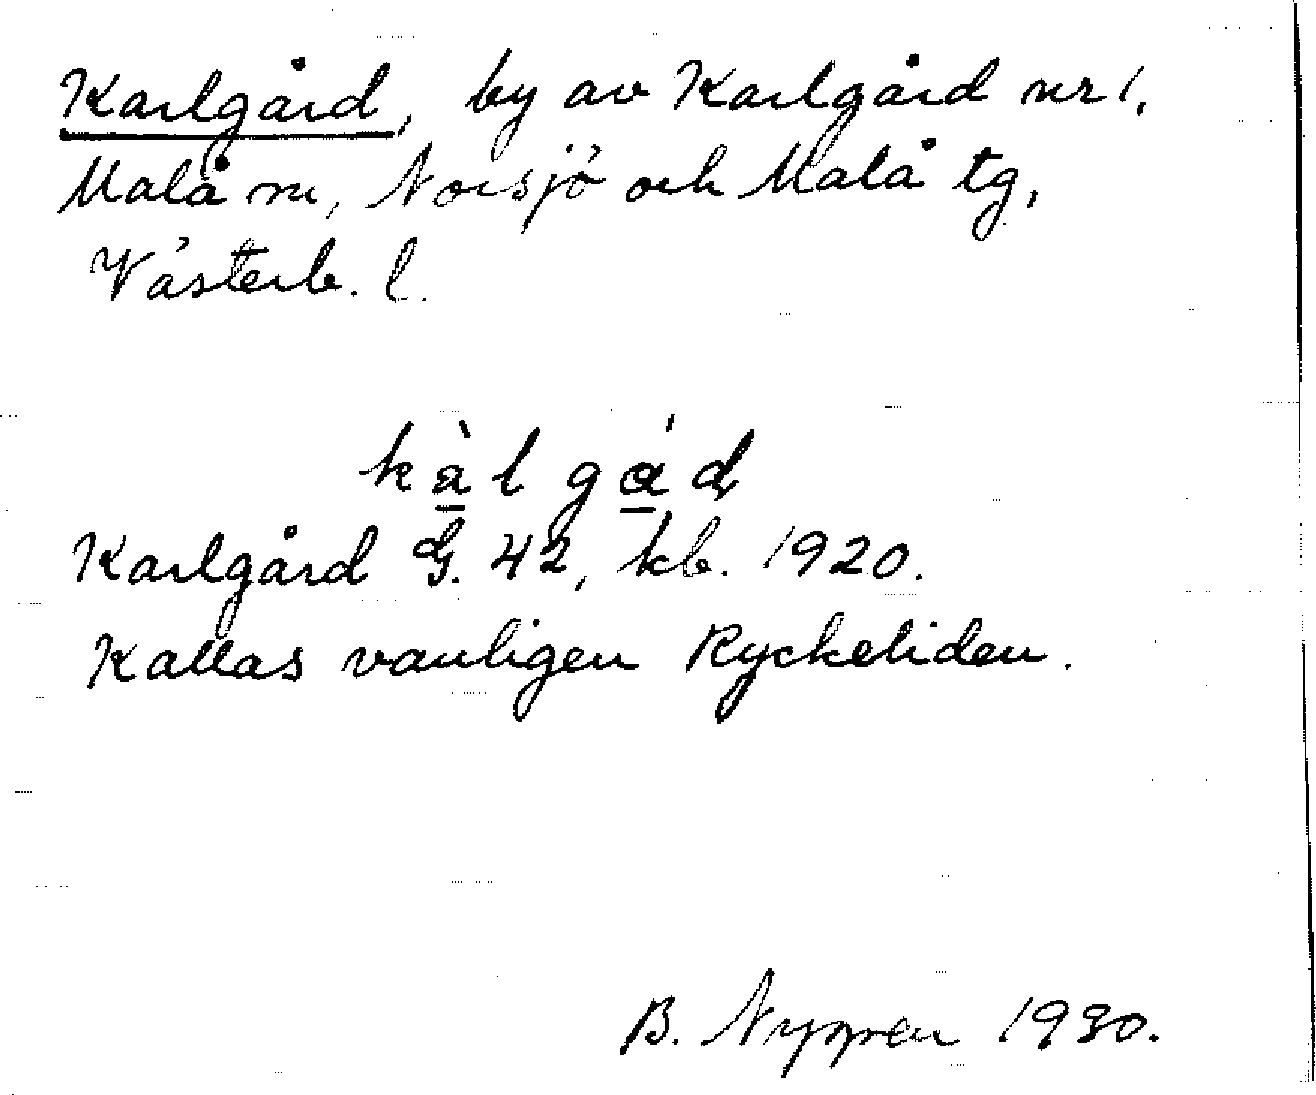 Karlgård, by av Karlgård nr 1,
Malå sn, Norsjö och Malå tg,
Västerb. l.
kà̱l gá̱d
Karlgård G. 42, kb. 1920.
Kallas vanligen Ryckeliden.
B. 1930.